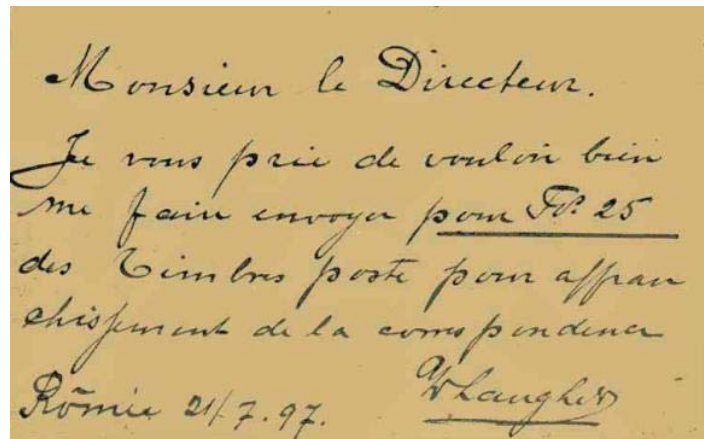 Monsieur le Directeur.
Je vous prie de vouloir bien
me faire envoyer pour Fr. 25
des timbres poste pour affran
chissement de la correspondence
21/7.97.